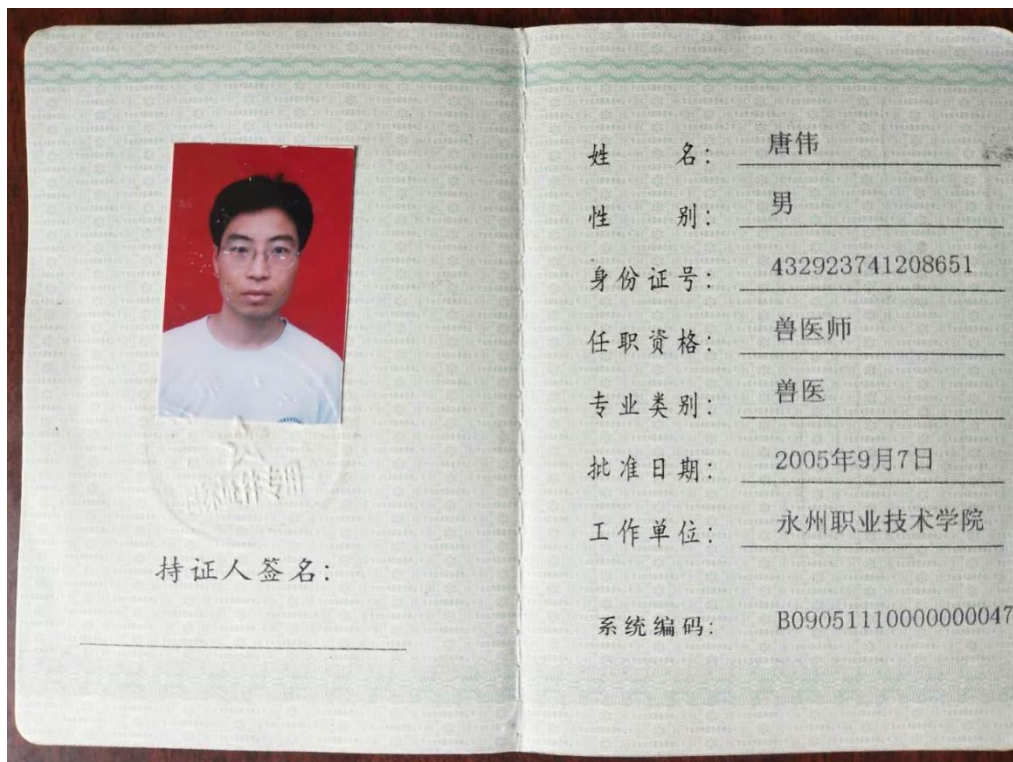 持证人签名：
姓 名： 唐伟
性 别： 男
身份证号： 432923741208651
任职资格： 兽医师
专业类别： 兽医
批准日期： 2005年9月7日
工作单位： 永州职业技术学院
系统编码： B09051110000000047